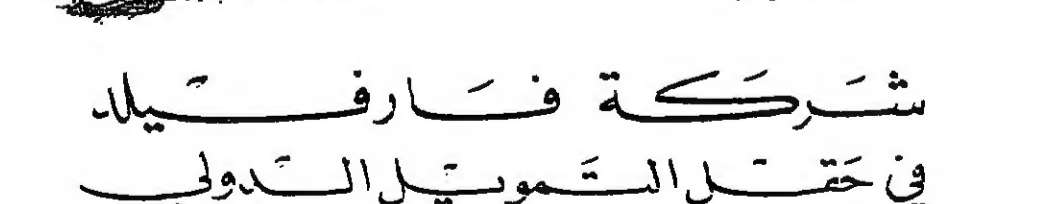 شَركَة فَارفيلد
في حَقل التَمويل الدَولي